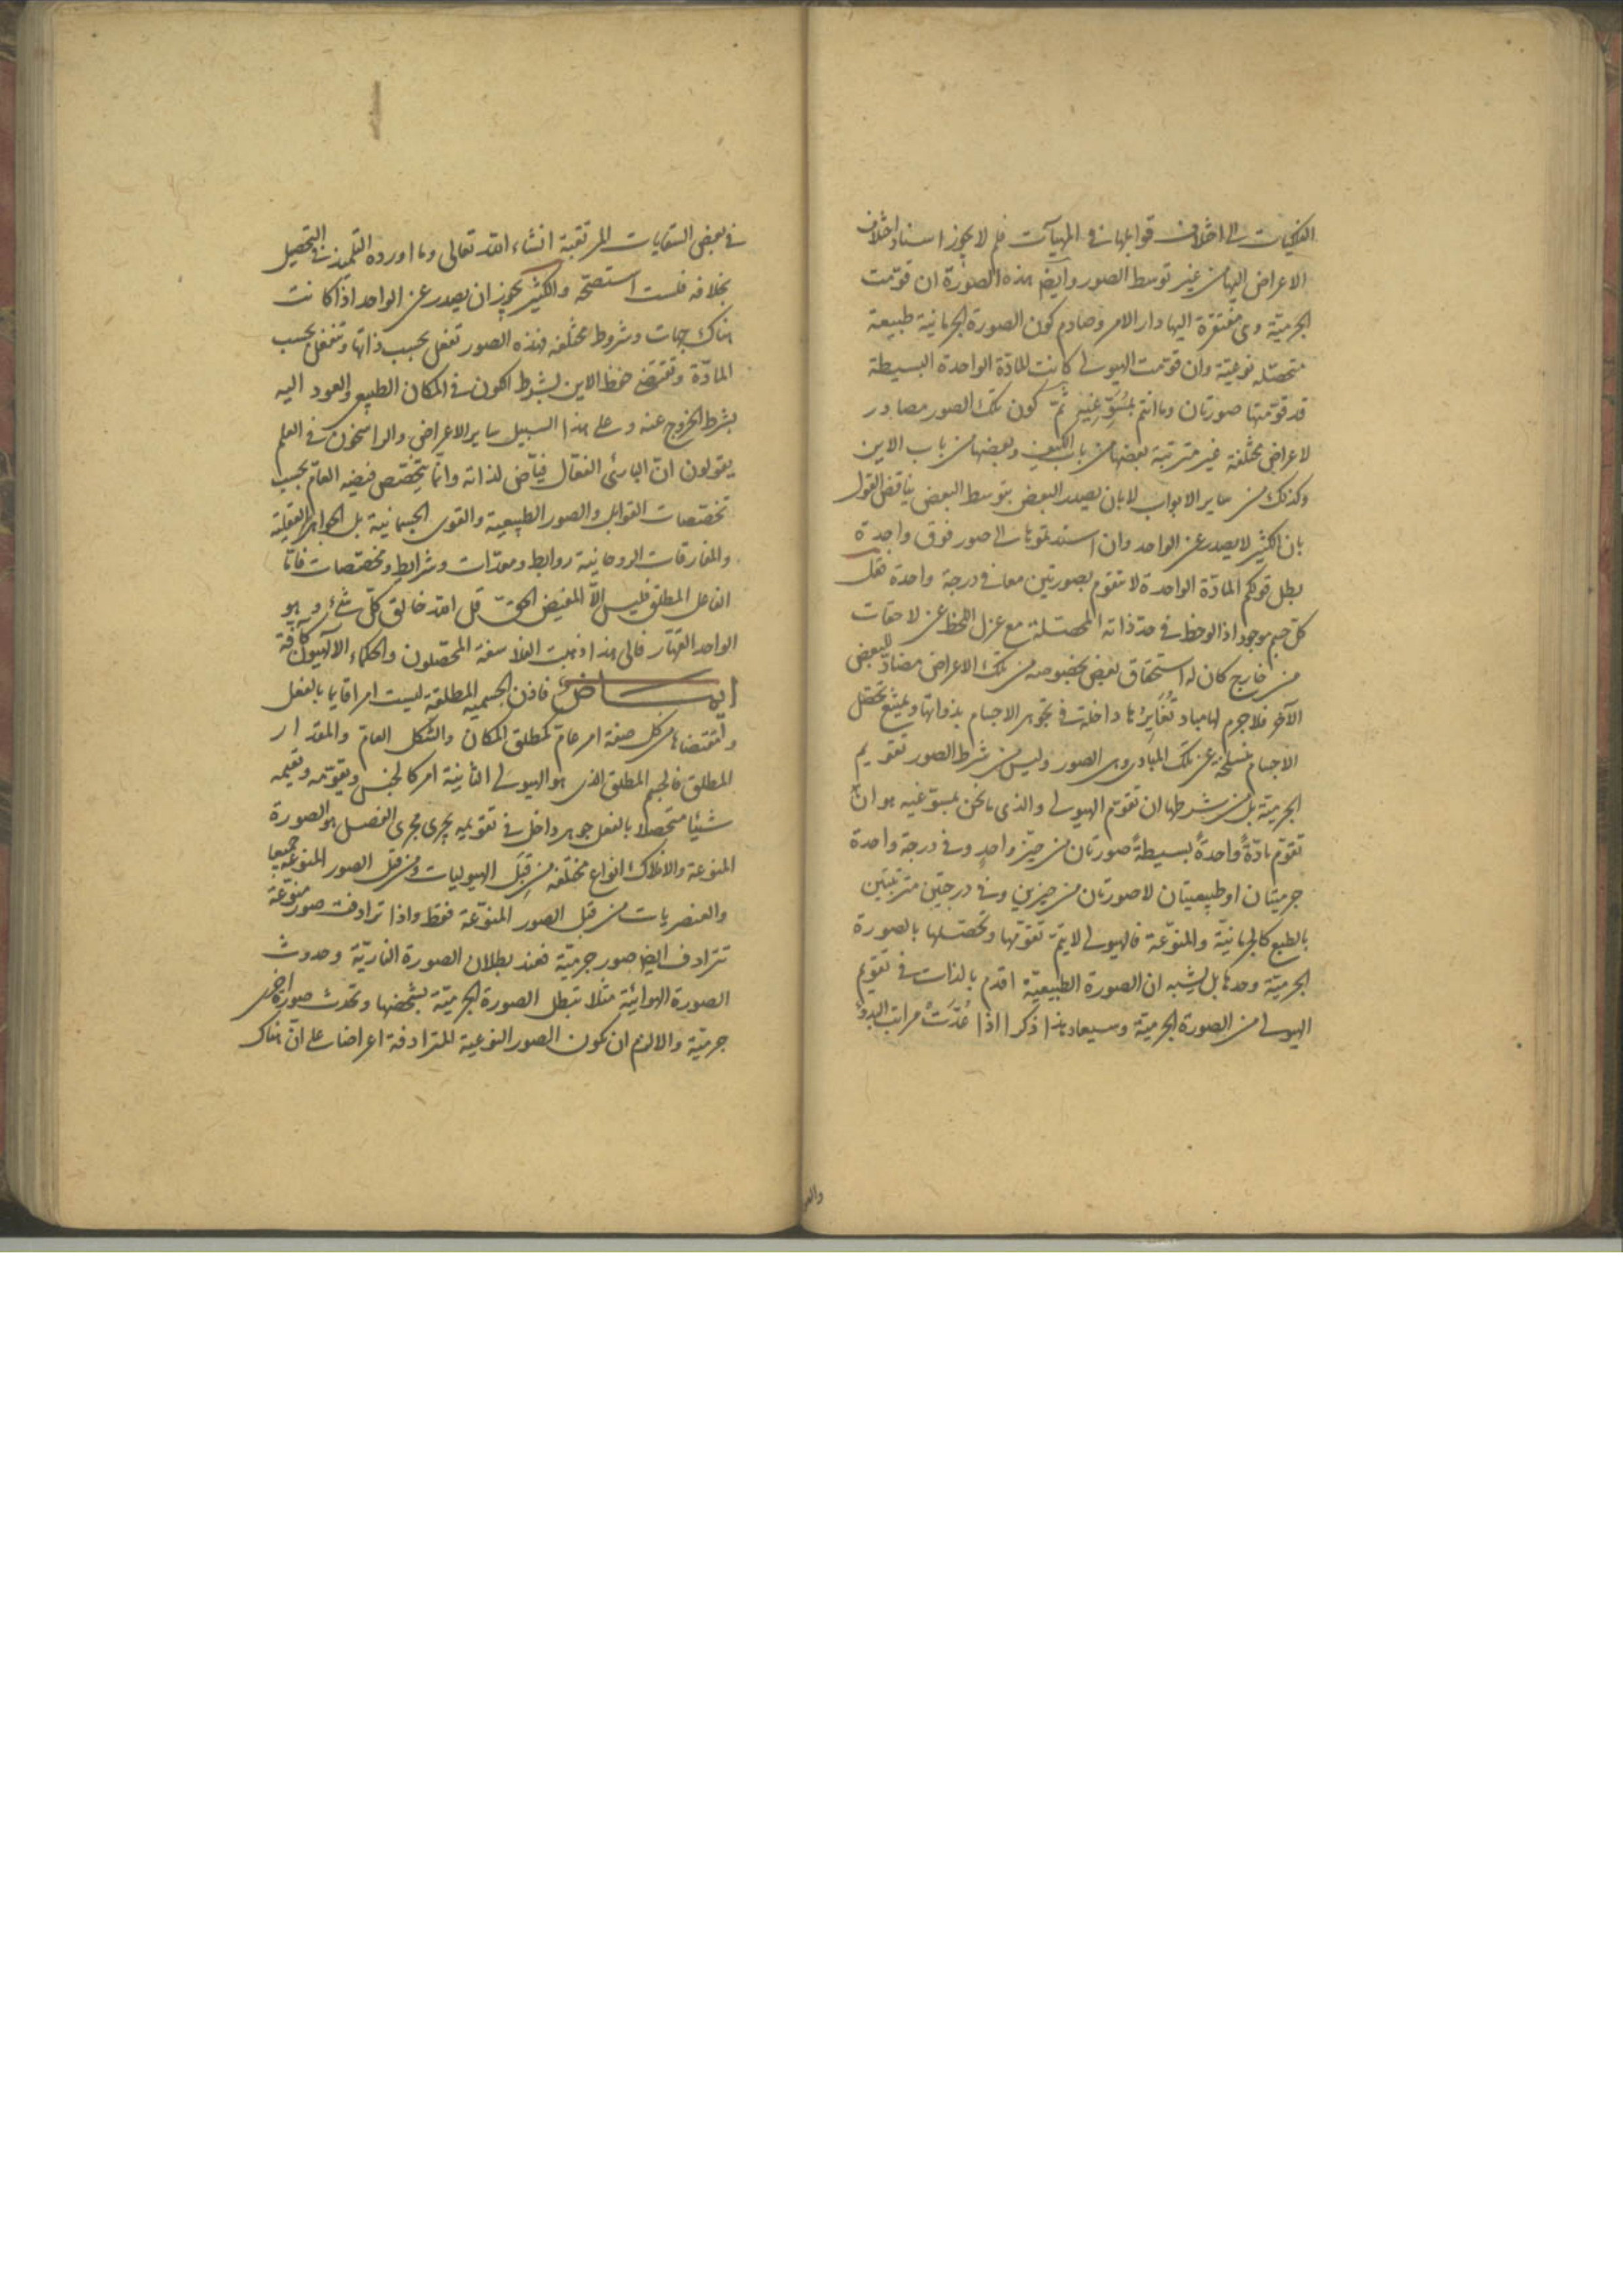 الفلكيات الى اختلاف قوابلها في المهيآت فلم لا يجوز اسناد اختلاف
الاعراض اليها من غير توسط الصور وايضا هذه الصورة ان قومت
الجرمية وهي مفتقرة اليها دار الامر وصادم كون الصورة الجرمانية طبيعة
متحصلة نوعية وان قومت الهيولى كانت للمادة الواحدة البسيطة
قد قومتها صورتان وما انتم بمسوغيه ثم كون تلك الصور مصادر
لاعراض مختلفة غير مترتبة بعضها من باب الكيف وبعضها من باب الاين
وكذلك من ساير الابواب لا بان يصدر البعض بتوسط البعض يناقض القول
بان الكثير لا يصدر عن الواحد وان استندتموها الى صور فوق واحدة
بطل قولكم المادة الواحدة لا تتقوم بصورتين معا في درجة واحدة فقل
كل جسم موجود اذا لوحظ في حد ذاته المحصلة مع عزل اللحظ عن لاحقات
من خارج كان له استحقاق بعض بخصوصه من تلك الاعراض مضاد للبعض
الآخر فلا جرم لها مباد تغايرها داخلة في تجوهر الاجسام بذواتها ويمتنع تحصل
الاجسام منسلخة عن تلك المبادي وهي الصور وليس من شرط الصور تقويم
الجرمية بل من شرطها ان تقوم الهيولى والذي ما نحن بمسوغيه هو ان
تقوم مادة واحدة بسيطة صورتان من حيز واحد وفي درجة واحدة
جرميتان او طبيعيتان لا صورتان من حيزين وفي درجتين مترتبتين
بالطبع كالجرمانية والمنوعة فالهيولى لا يتم تقومها وتحصلها بالصورة
الجرمية وحدها بل يشبه ان الصورة الطبيعية اقدم بالذات في تقويم
الهيولى من الصورة الجرمية وسيعاد هذا ذكرا اذا عدت مراتب البدو
في بعض السقايات المرتقبة انشاء الله تعالى وما اورده التلميذ في التحصيل
بخلافه فلست استصحه والكثير يجوز ان يصدر عن الواحد اذا كانت
هناك جهات وشروط مختلفة فهذه الصور تفعل بحسب ذاتها وتنفعل بحسب
المادة وتقتضي حفظ الاين بشرط الكون في المكان الطبيعي والعود اليه
بشرط الخروج عنه وعلى هذا السبيل ساير الاعراض والراسخون في العلم
يقولون ان البارئ الفعال فياض لذاته وانما يتخصص فيضه العام بحسب
تخصصات القوابل والصور الطبيعية والقوى الجسمانية بل الجواهر العقلية
والمفارقات الروحانية روابط ومعدات وشرايط ومخصصات فاما
الفاعل المطلق فليس الا المفيض الحق قل الله خالق كل شئ وهو
الواحد القهار فالى هذا ذهبت الفلاسفة المحصلون والحكماء الآلهيون كافة
ايماض فاذن الجسمية المطلقة ليست امرا قايما بالفعل
ومقتضاها من كل صفة امر عام كمطلق المكان والشكل العام والمقدار
المطلق فالجسم المطلق الذي هو الهيولى الثانية امر كالجنس ويقومه ويقيمه
شيئا متحصلا بالفعل جوهر داخل في تقويمه يجري مجرى الفصل هو الصورة
المنوعة والافلاك انواع مختلفة من قبل الهيوليات ومن قبل الصور المنوعة جميعا
والعنصريات من قبل الصور المنوعة فقط واذا ترادفت صور منوعة
تترادف ايضا صور جرمية فعند بطلان الصورة النارية وحدوث
الصورة الهوائية مثلا تبطل الصورة الجرمية بشخصها وتحدث صورة اخرى
جرمية والا لزم ان تكون الصور النوعية المترادفة اعراضا على ان هناك